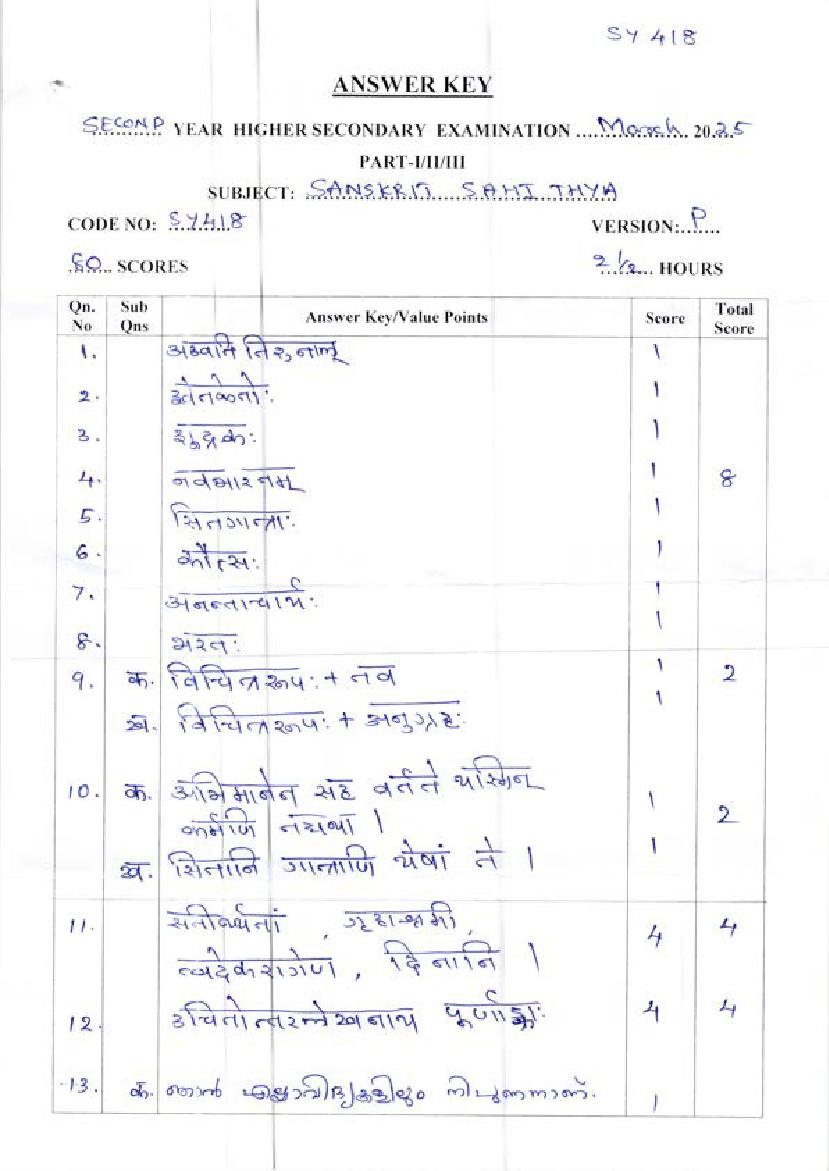 SY 418
ANSWER KEY
SECOND YEAR HIGHER SECONDARY EXAMINATION March 2025
PART-I/II/III
SUBJECT: SANSKRIT SAHITHYA
CODE NO: SY418 VERSION: P
60 SCORES 2 1/2 HOURS
Qn. No Sub Qns Answer Key/Value Points Score Total Score
1. अश्वति तिरुनाल् 1
2. श्वेतकेतोः 1
3. शूद्रकः 1
4. नवभारतम् 1 8
5. सितगात्राः 1
6. कौत्सः 1
7. अनन्ताचार्यः 1
8. भरतः 1
9. क. विचित्ररूपः + तव 1 2
ख. विचित्ररूपः + अनुग्रहः 1
10. क. अभिमानेन सह वर्तते यस्मिन् 1
कर्मणि तद्यथा । 2
ख. सितानि गात्राणि येषां ते । 1
11. सतीर्थ्यतां , गृहाश्रमी, 4 4
त्वदेकरागेण , दिनानि ।
12. उचितोत्तरलेखनाय पूर्णाङ्काः 4 4
13. क. ഞാൻ എല്ലാവിദ്യകളിലും നിപുണനാണ്. 1